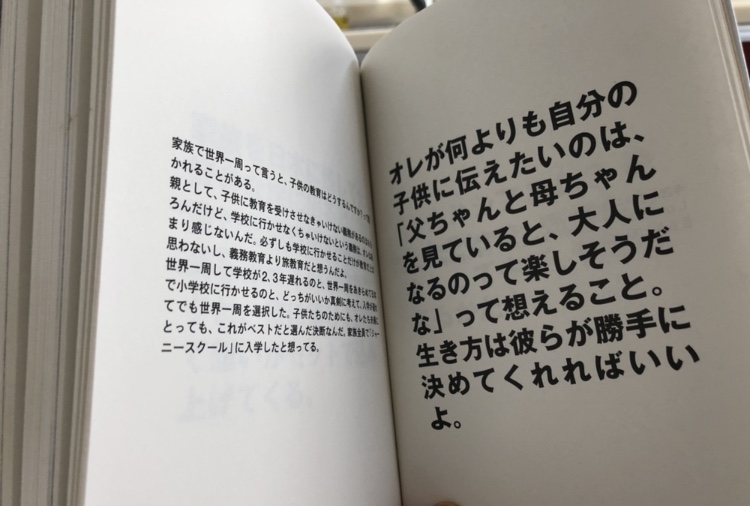 家族で世界一周って言うと、子供の教育はどうするんですか?って
かれることがある。
親として、子供に教育を受けさせなきゃいけない義務があるのは
ろんだけど、学校に行かせなくちゃいけないという義務は、オレは
まり感じないんだ。必ずしも学校に行かせることだけが教育だとは
思わないし、義務教育より旅教育だと想うんだよ。
世界一周して学校が2、3年遅れるのと、世界一周をあきらめて
で小学校に行かせるのと、どっちがいいか真剣に考えて、入学が遅れ
てでも世界一周を選択した。子供たちのためにも、オレたち夫婦に
とっても、これがベストだと選んだ決断なんだ。家族全員で「ジャー
ニースクール」に入学したと想ってる。
オレが何よりも自分の
子供に伝えたいのは、
「父ちゃんと母ちゃん
を見ていると、大人に
なるのって楽しそうだ
な」って想えること。
生き方は彼らが勝手に
決めてくれればいい
よ。